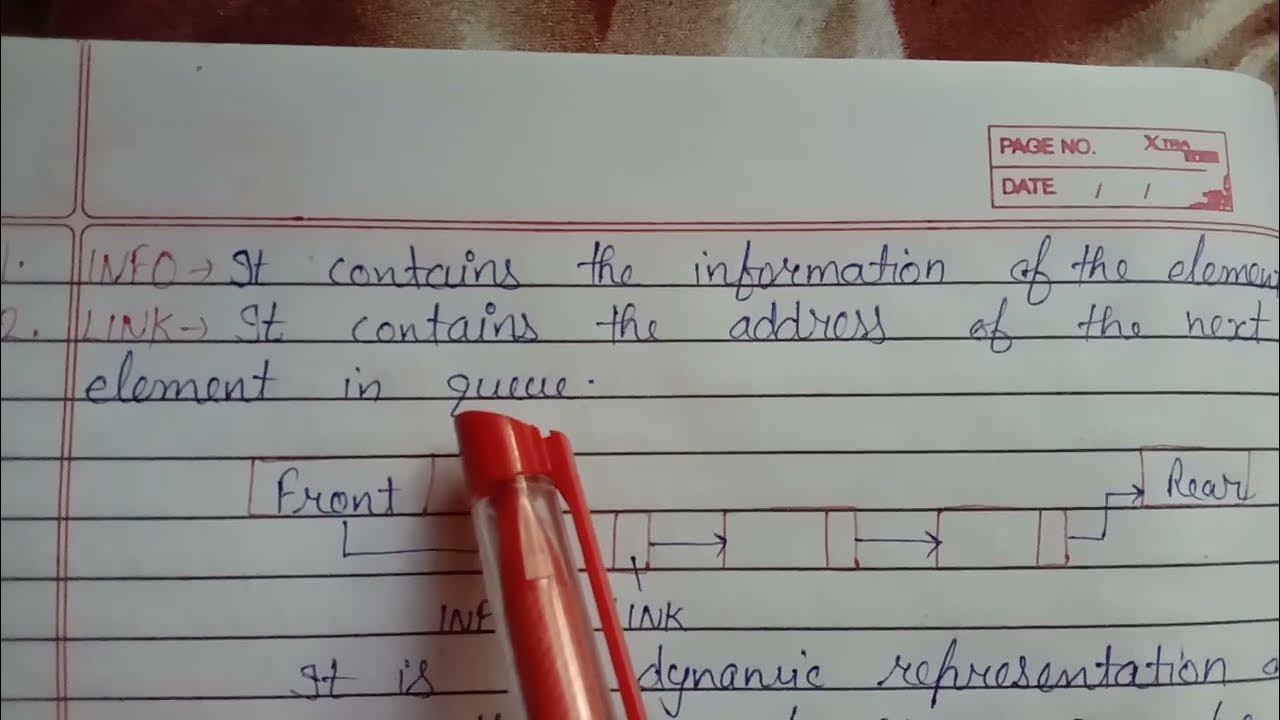 PAGE NO. XTRA
DATE / /
1. INFO → It contains the information of the elemen
2. LINK → It contains the address of the next
element in queue.
Front Rear
INF INK
It is dynamic representation